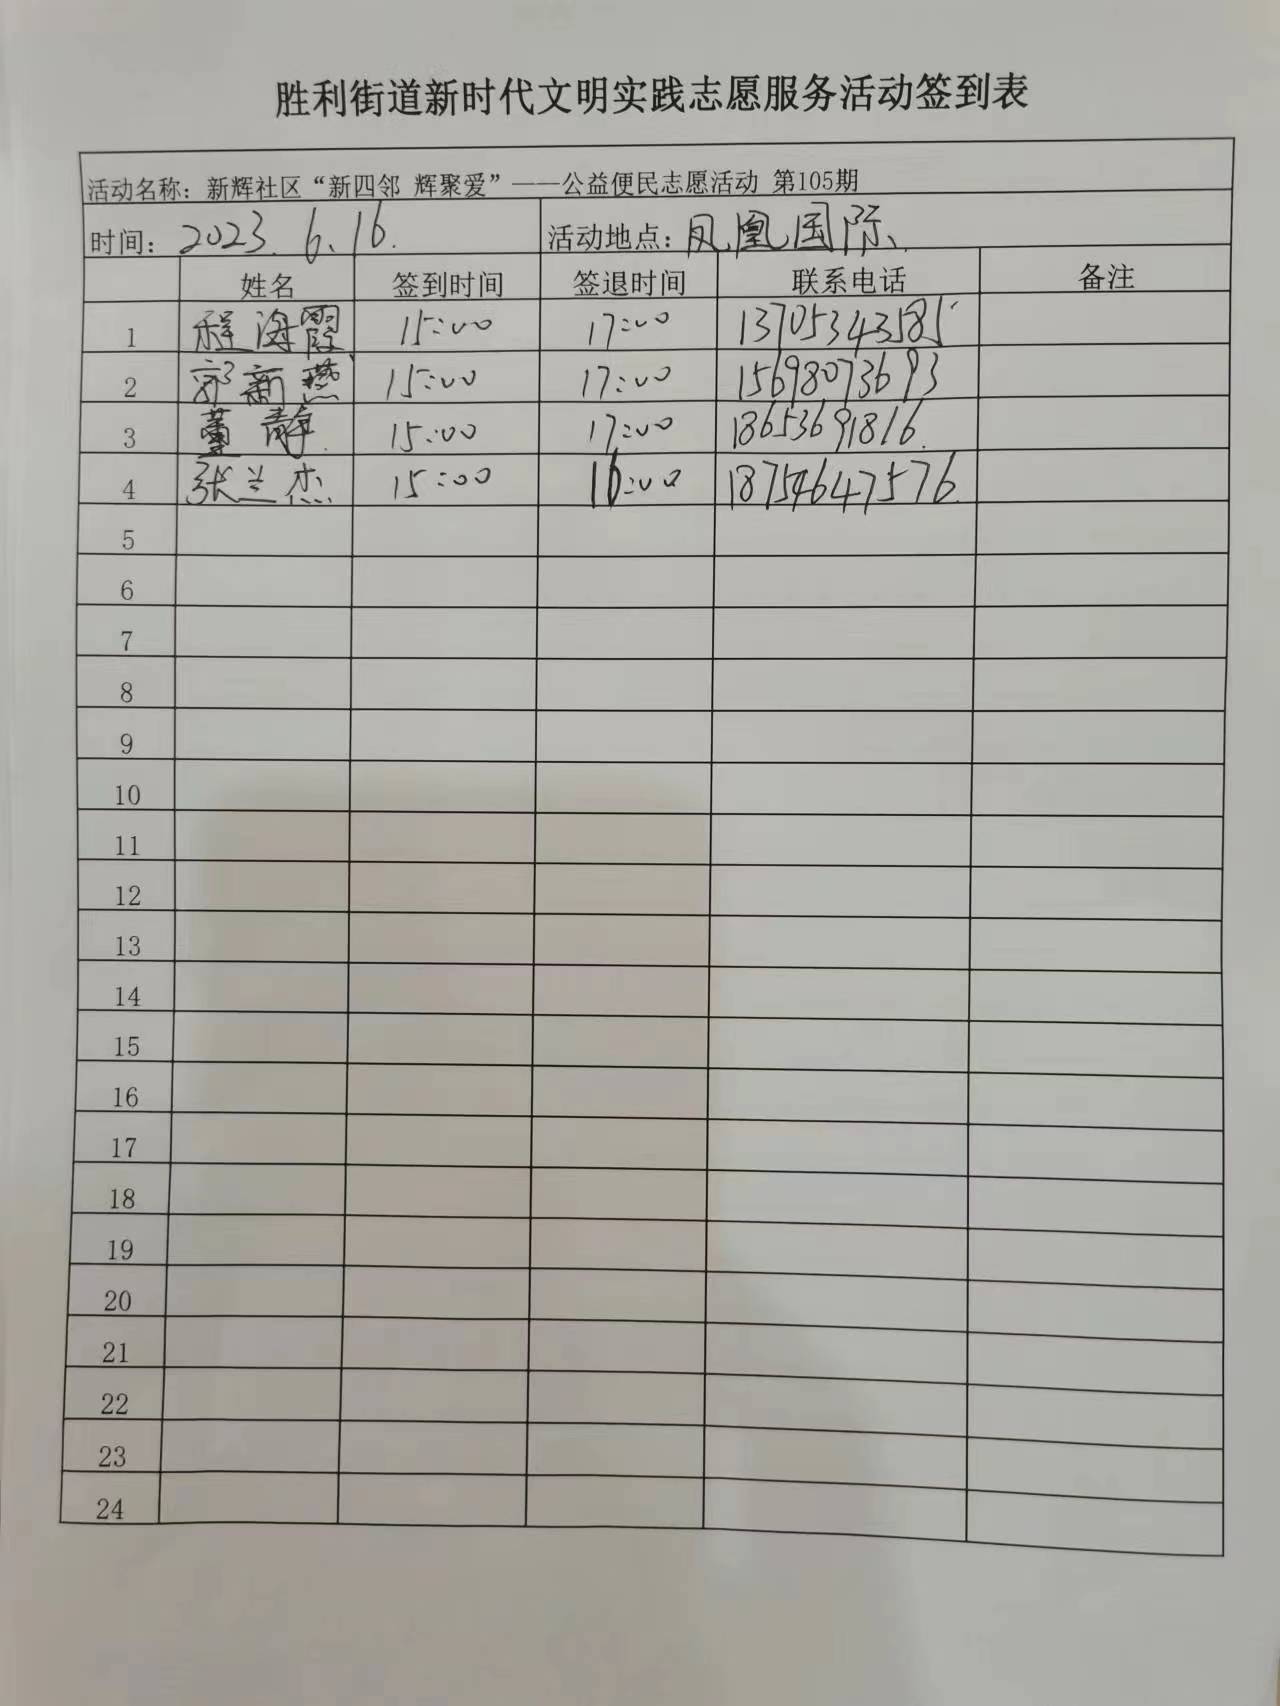 胜利街道新时代文明实践志愿服务活动签到表
活动名称：新辉社区“新四邻 辉聚爱”——公益便民志愿活动 第105期
时间：2023.6.16. 活动地点：凤凰国际
姓名 签到时间 签退时间 联系电话 备注
1 程海霞 15:00 17:00 13705343585
2 郭新燕 15:00 17:00 15698073693
3 董静 15:00 17:00 18653691816
4 张兰杰 15:00 16:00 18754647576
5
6
7
8
9
10
11
12
13
14
15
16
17
18
19
20
21
22
23
24